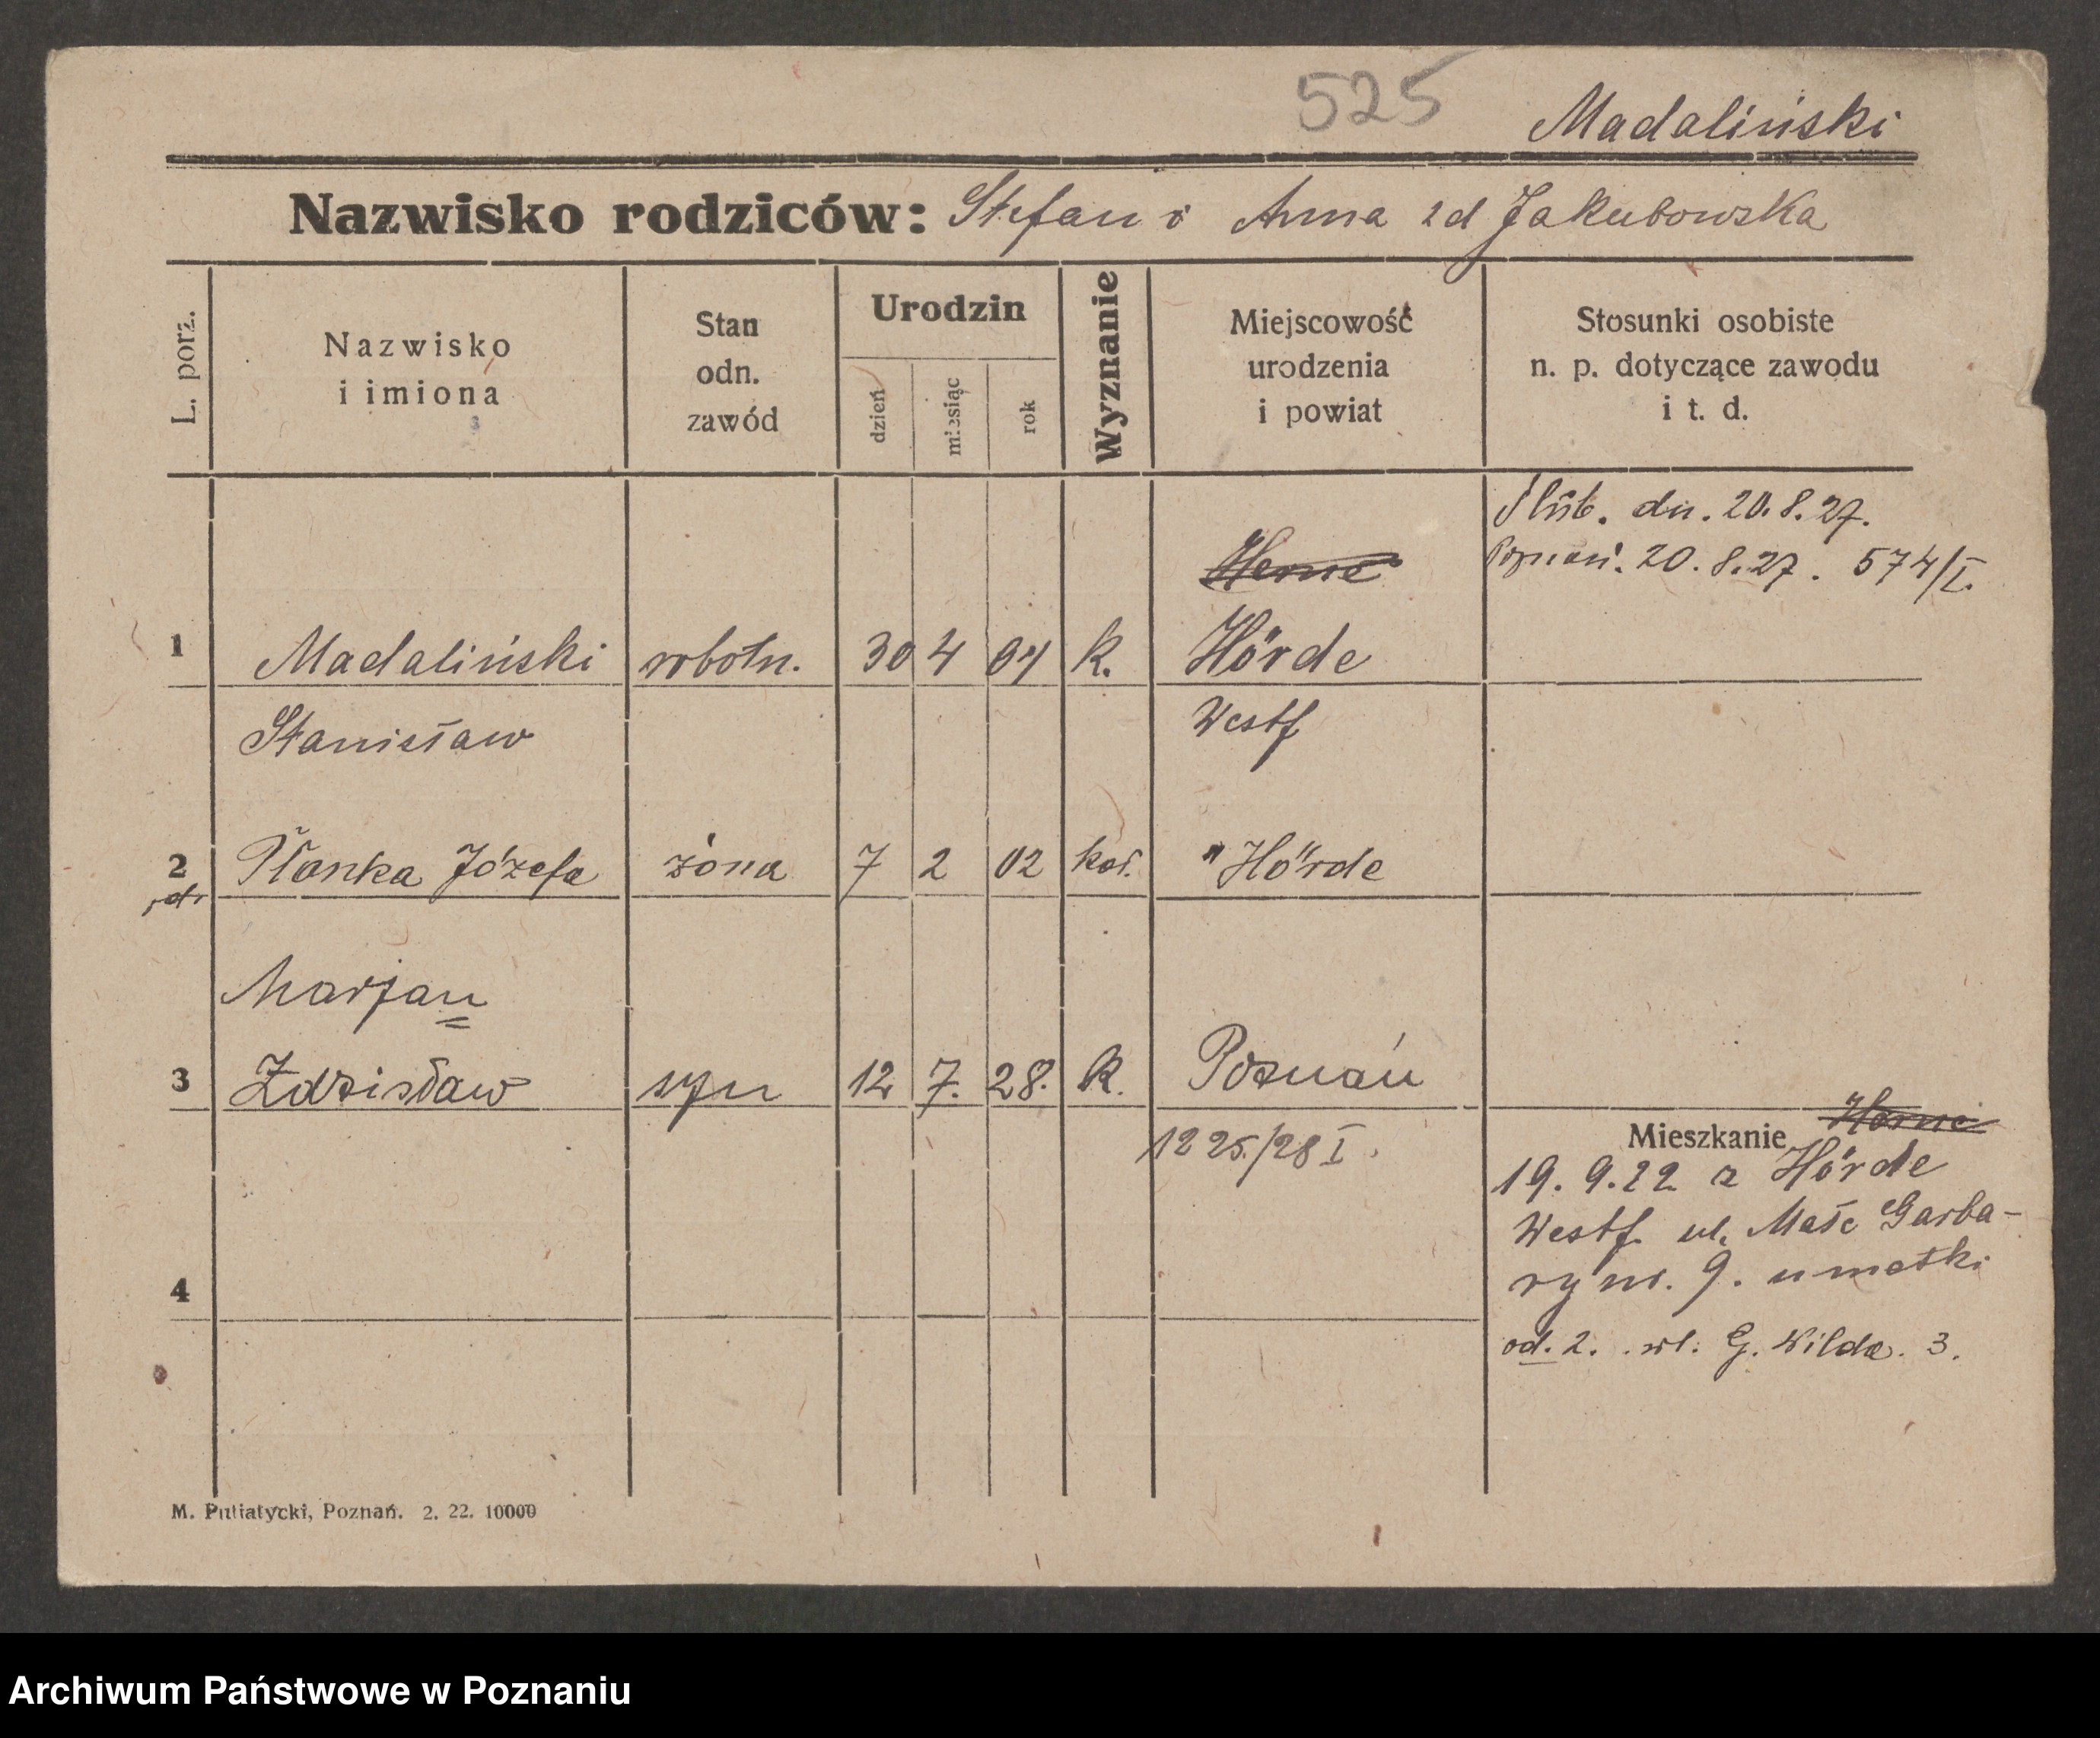 525 Madaliński
Nazwisko rodziców: Stefan i Anna zd Jakubowska
L. porz.
Nazwisko
i imiona
Stan
odn.
zawód
Urodzin
dzień
miesiąc
rok
Wyznanie
Miejscowość
urodzenia
i powiat
Stosunki osobiste
n. p. dotyczące zawodu
i t. d.
Ślub. dn. 20.8.27.
Poznań. 20.8.27. 574/I.
Herne
1 Madaliński robotn. 30 4 04 k. Hörde
Stanisław Westf
2 Płonka Józefa żona 7 2 02 kat. " Hörde
Marjan
3 Zdzisław syn 12 7. 28. k. Poznań
1225/28 I.
Mieszkanie Herne
19. 9. 22 z Hörde
Westf. ul. Małe Garba-
ry nr. 9. u matki
4
od. 2. . wł. G. Wilda. 3.
M. Putiatycki, Poznań. 2. 22. 10000
Archiwum Państwowe w Poznaniu